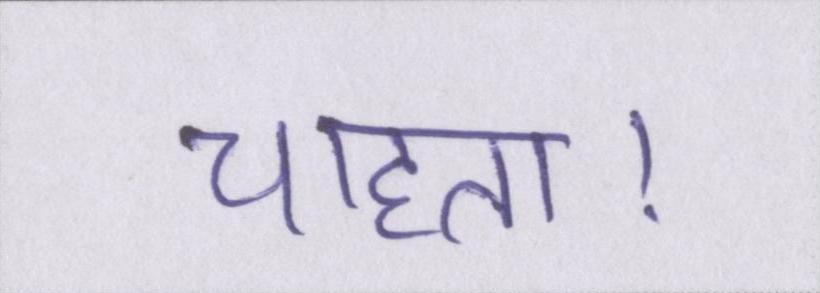 चाहता!